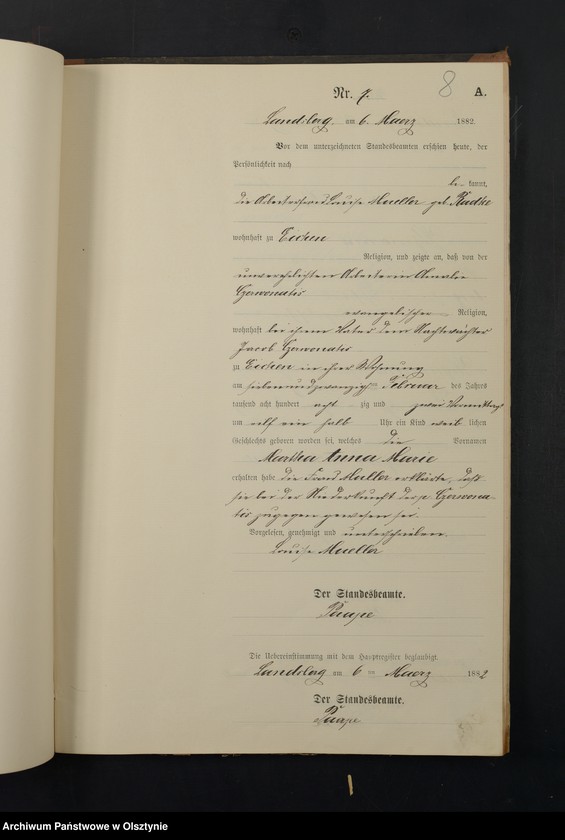 8
Nr. 7. A.
Landsberg am 6. Maerz 1882.
Vor dem unterzeichneten Standesbeamten erschien heute, der
Persönlichkeit nach
be kannt,
die Arbeiterfrau Louise Mueller geb. Radtke
wohnhaft zu Eichen
Religion, und zeigte an, daß von der
unverehelichten Arbeiterin Amalie
Czerwonatis
evangelischer Religion,
wohnhaft bei ihrem Vater dem Nachtwächter
Jacob Czerwonatis
zu Eichen in ihrer Wohnung
am siebenundzwanzig Februar des Jahres
tausend acht hundert acht zig und zwei Vormittags
um elf ein halb Uhr ein Kind weib lichen
Geschlechts geboren worden sei, welches die Vornamen
Martha Anna Marie
erhalten habe die Frau Mueller erklärte, daß
sie bei der Niederkunft der p. Czerwona-
tis zugegen gewesen sei.
Vorgelesen, genehmigt und unterschrieben
Louise Mueller
Der Standesbeamte.
Die Uebereinstimmung mit dem Hauptregister beglaubigt.
Landsberg am 6 ten Maerz 1882
Der Standesbeamte.
Archiwum Państwowe w Olsztynie